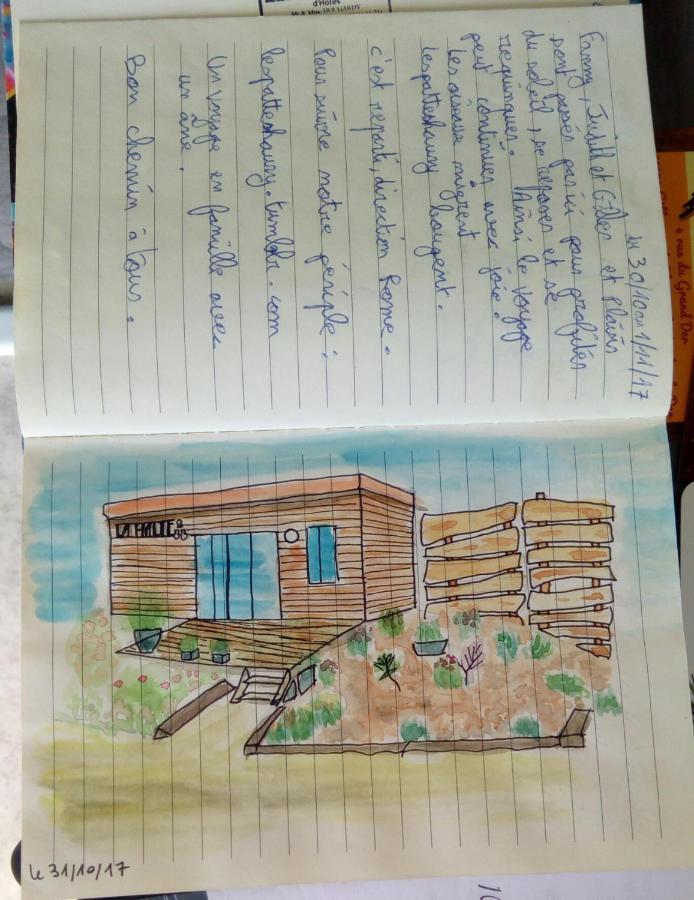 du 30/10 au 1/11/17
Fanny, Judith et Gilles et Plávis
sont passés par ici pour profiter
du soleil, se reposer et se
requinquer. Ainsi le voyage
peut continuer avec joie !
Les oiseaux migrent
lespatteshaussy bougent.
c'est reparti, direction Rome.
Pour suivre notre périple :
lespatteshaussy.tumblr.com
Un voyage en famille avec
un âne.
Bon chemin à tous.
LA HALTE
le 31/10/17
d'Hôtes
rue du Grand